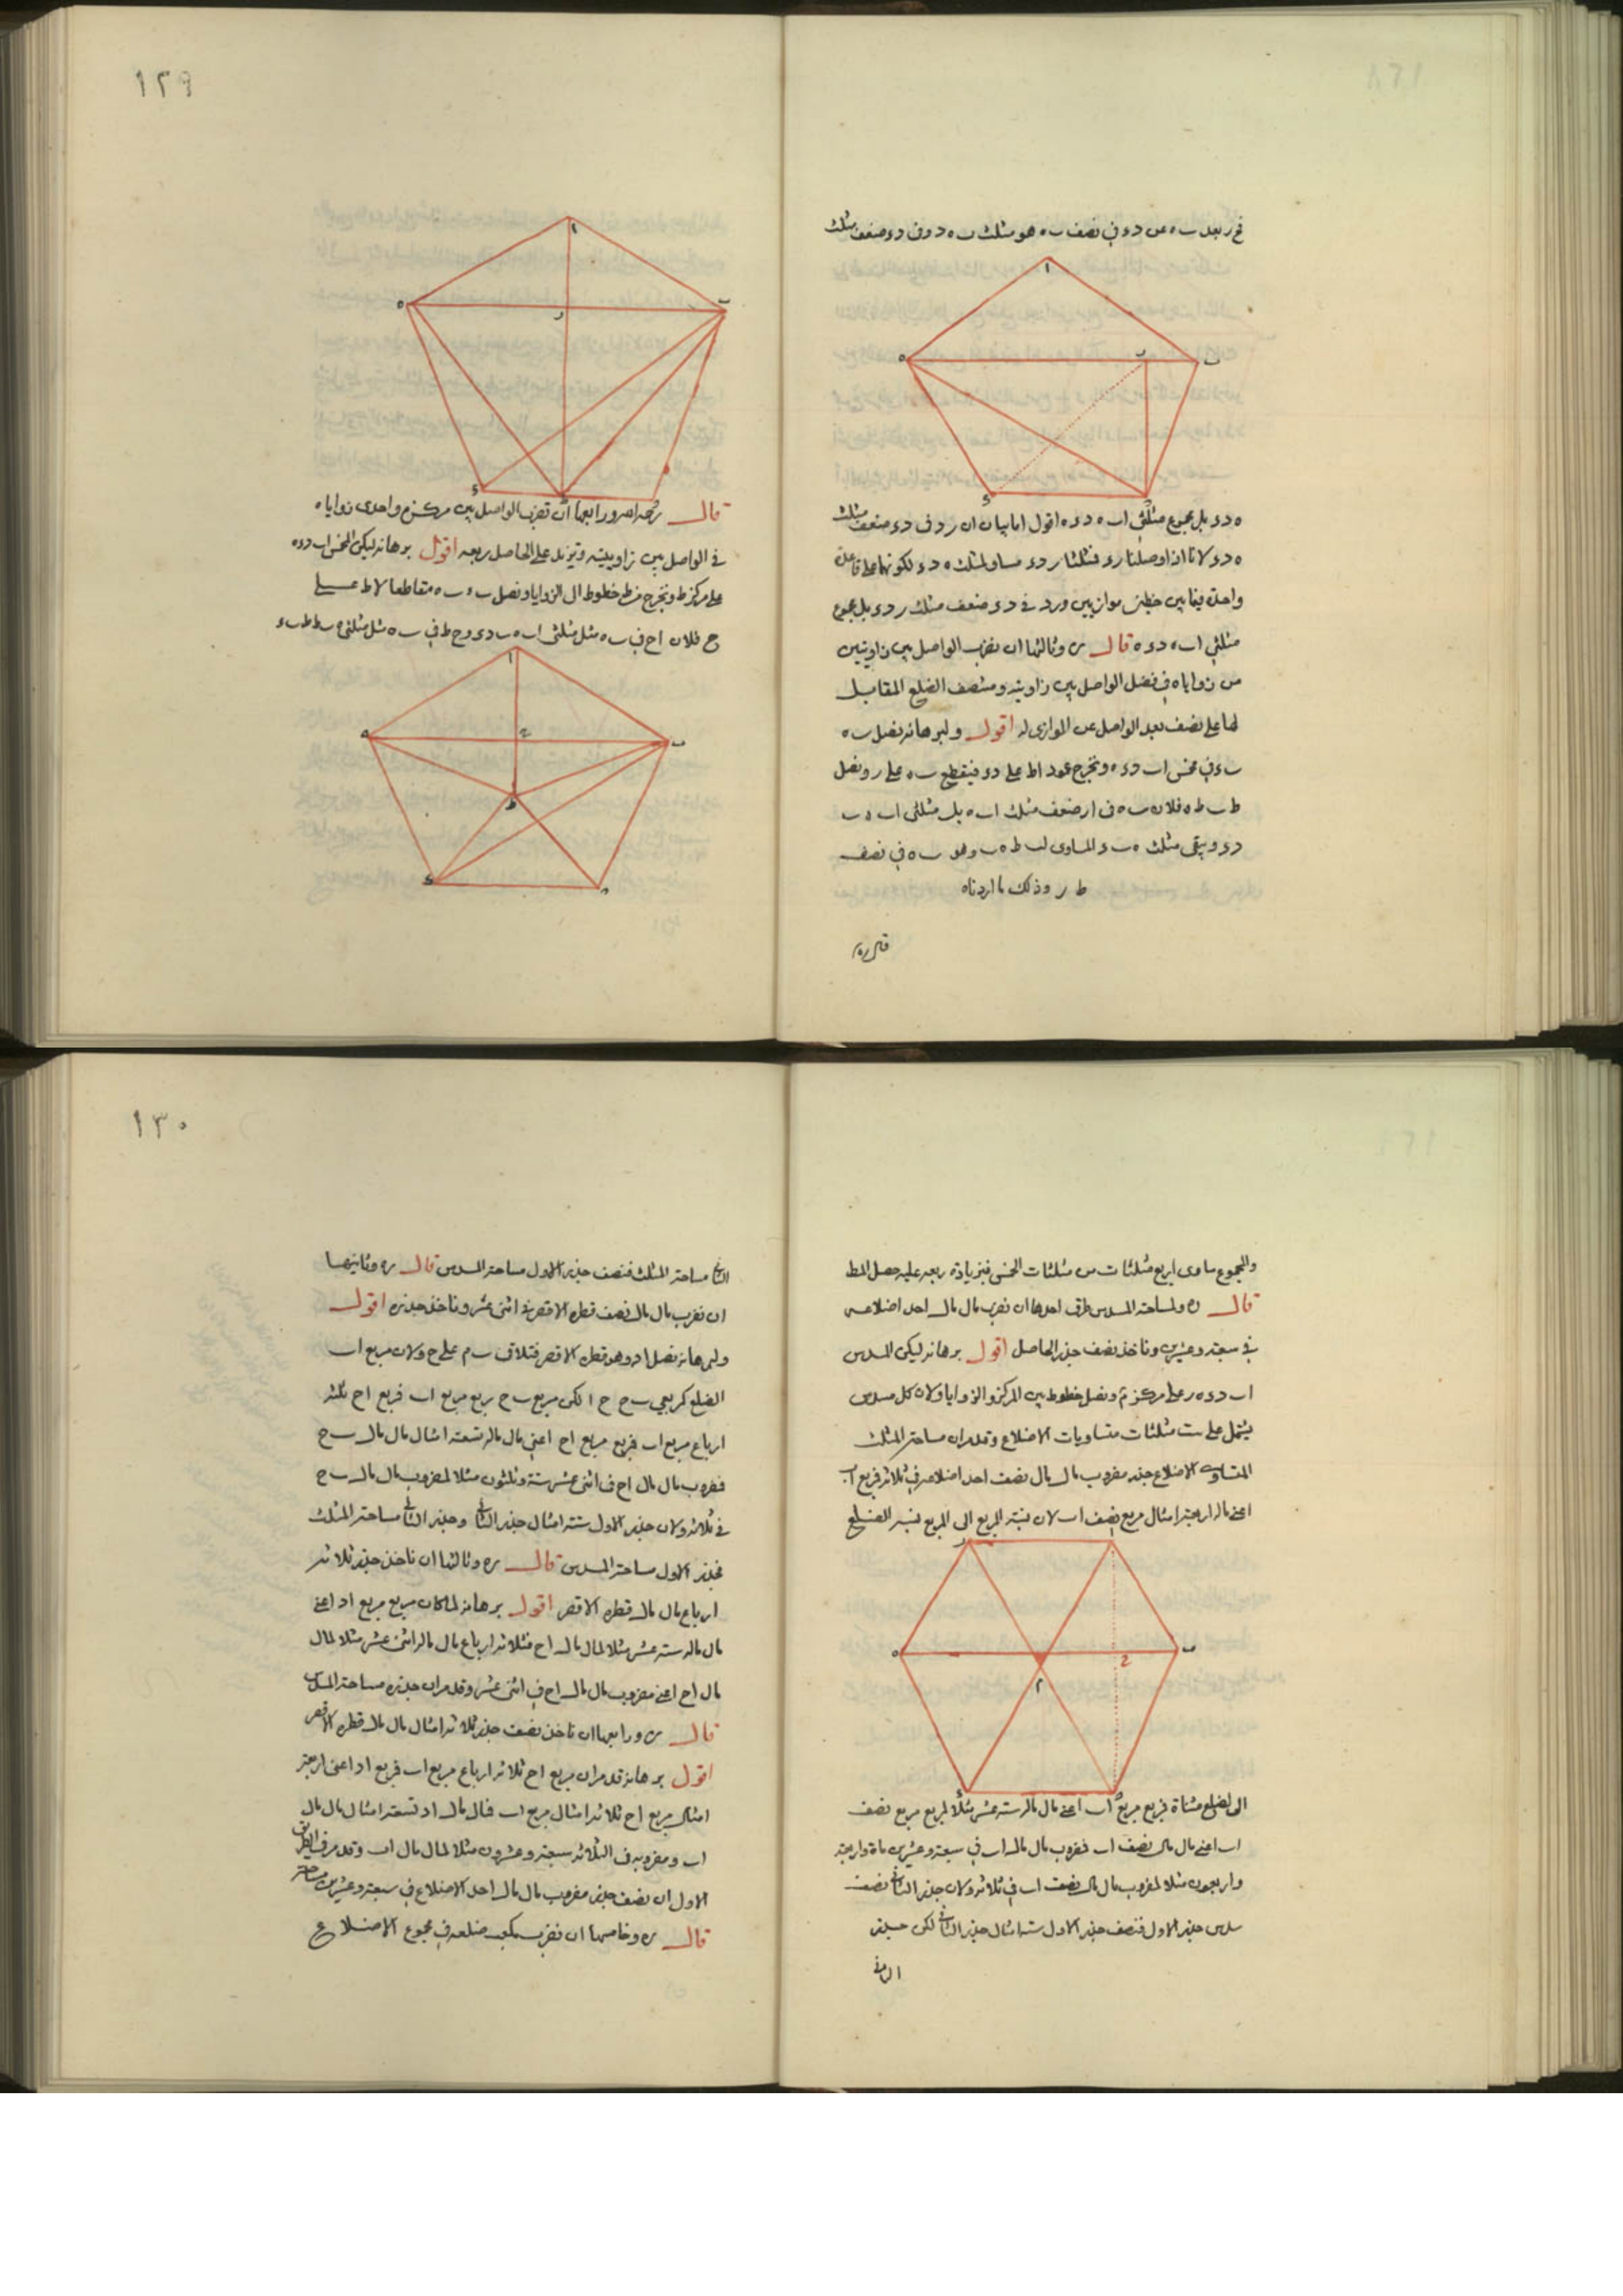 ١٢٩
فى نصف ب ه هو مثلث ب ه د و فى د ء ضعف مثلث
ه د ء بل مجموع مثلثى ا ب ه د ء ه اقول اما بيان ان ر د فى د ء ضعف مثلث
ه د ء لانا اذا وصلنا ر ء فمثلثا ر د ء مساو لمثلث ه د ء لكونهما على قاعدة
واحدة فيما بين خطين موازيين و ر د فى د ء ضعف مثلث ر د ء بل مجموع
مثلثى ا ب ه د ء ه قال ره وثالثها ان نضرب الواصل بين زاويتين
من زواياه فى فضل الواصل بين زاويته ومنتصف الضلع المقابل
لها على نصف بعد الواصل عن الموازى له اقول ولبرهانه نصل ب ه
ب ء فى مخمس ا ب د ء ه ونخرج عمود ا ط على د ء فيقطع ب ه على ر ونصل
ط ب ط ه فلان ب ه فى ا ر ضعف مثلث ا ب ه بل مثلثى ا ب ه ب
د ء ويبقى مثلث ه ب ء المساوى لـ ط ه ب وهو ب ه فى نصف
ط ر وذلك ما اردناه
قال ره
قال رحمه الله ورابعها ان نضرب الواصل بين مركزه واحدى زواياه
فى الواصل بين زاويتيه ونزيد على الحاصل ربعه اقول برهانه ليكن المخمس ا ب د ء ه
على مركز ط ونخرج من ط خطوطا الى الزوايا ونصل ب ء ب ه مقاطعا لا ط على
ح فلان ا ح فى ب ه مثل مثلثى ا ب ه ب د ء و ح ط فى ب ه مثل مثلثى ه ب ط ط ب ء
١٣٠
والمجموع ساوى اربع مثلثات من مثلثات المخمس فبزيادة ربعه عليه حصل المط
قال ره ولمساحة المسدس طرق احدها ان نضرب مال مال احد اضلاعه
فى سبعة وعشرين وناخذ نصف جذر الحاصل اقول برهانه ليكن المسدس
ا ب د ء ه ر على مركز م ونصل خطوط بين المركز والزوايا ولان كل مسدس
يشتمل على ست مثلثات متساويات الاضلاع وقد مر ان مساحة المثلث
المتساوى الاضلاع جذر مضروب مال مال نصف احد اضلاعه فى ثلاثة فمربع ا ب
اعنى ماله اربعة امثال مربع نصف ا ب لان نسبة المربع الى المربع نسبة الضلع
الى الضلع مثناة فمربع مربع ا ب اعنى مال ماله ستة عشر مثلا لمربع مربع نصف
ا ب اعنى مال مال نصف ا ب فمضروب مال مال ا ب فى سبعة وعشرين ماة واربعة
واربعون مثلا لمضروب مال مال نصف ا ب فى ثلاثة ولان جذر الثانى نصف
سدس جذر الاول فنصف جذر الاول ستة امثال جذر الثانى لكن جذر
الثانى
الثانى مساحة المثلث فنصف جذر الاول مساحة المسدس قال ره وثانيها
ان نضرب مال مال نصف قطره الاقصر فى اثنى عشر وناخذ جذره اقول
ولبرهانه نصل ا د وهو قطره الاقصر فتلاقى ب م على ح ولان مربع ا ب
الضلع كمربعى ب ح ح ا لكن مربع ب ح ربع مربع ا ب فمربع ا ح ثلثة
ارباع مربع ا ب فمربع مربع ا ح اعنى مال ماله تسعة امثال مال مال ب ح
فمضروب مال مال ا ح فى اثنى عشر ستة وثلثون مثلا لمضروب مال مال ب ح
فى ثلاثة ولان جذر الاول ستة امثال جذر الثانى وجذر الثانى مساحة المثلث
فجذر الاول مساحة المسدس قال ره وثالثها ان ناخذ جذر ثلاثة
ارباع مال مال قطره الاقصر اقول برهانه لما كان مربع مربع ا د اعنى
مال ماله ستة عشر مثلا لمال مال ا ح فثلاثة ارباع مال ماله اثنى عشر مثلا لمال
مال ا ح اعنى مضروب مال مال ا ح فى اثنى عشر وقد مر ان جذره مساحة المسدس
قال ره ورابعها ان ناخذ نصف جذر ثلاثة امثال مال مال قطره الاقصر
اقول برهانه قد مر ان مربع ا ح ثلاثة ارباع مربع ا ب فمربع ا د اعنى اربعة
امثال مربع ا ح ثلاثة امثال مربع ا ب فمال مال ا د تسعة امثال مال مال
ا ب ومضروبه فى الثلاثة سبعة وعشرون مثلا لمال مال ا ب وقد مر فى الطريق
الاول ان نصف جذر مضروب مال مال احد الاضلاع فى سبعة وعشرين مساحة
قال ره وخامسها ان نضرب مكعب ضلعه فى مجموع الاضلاع